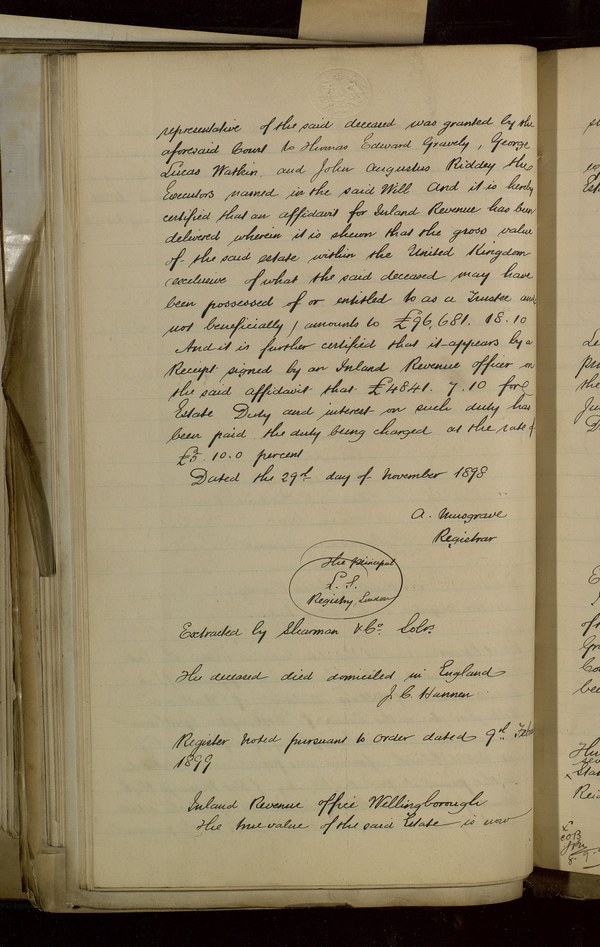 representative of the said deceased was granted by the
aforesaid Court to Thomas Edward Gravely, George
Lucas Watkin and John Augustus Riddey the
Executors named in the said Will And it is hereby
certified that an affidavit for Inland Revenue has been
delivered wherein it is shewn that the gross value
of the said estate within the United Kingdom
(exclusive of what the said deceased may have
been possessed of or entitled to as a Trustee and
not beneficially) amounts to £96,681. 18. 10
And it is further certified that it appears by a
Receipt signed by an Inland Revenue officer on
the said affidavit that £4841. 7. 10 for
Estate Duty and interest on such duty has
been paid the duty being charged at the rate of
£5. 10. 0 percent
Dated the 29th day of November 1898
A. Musgrave
Registrar
The Principal
L. S.
Registry London
Extracted by Sharman & Co. Solrs
The deceased died domiciled in England
J. C. Hannen
Register noted pursuant to order dated 9th
1899
Inland Revenue office Wellingborough
The true value of the said Estate is now